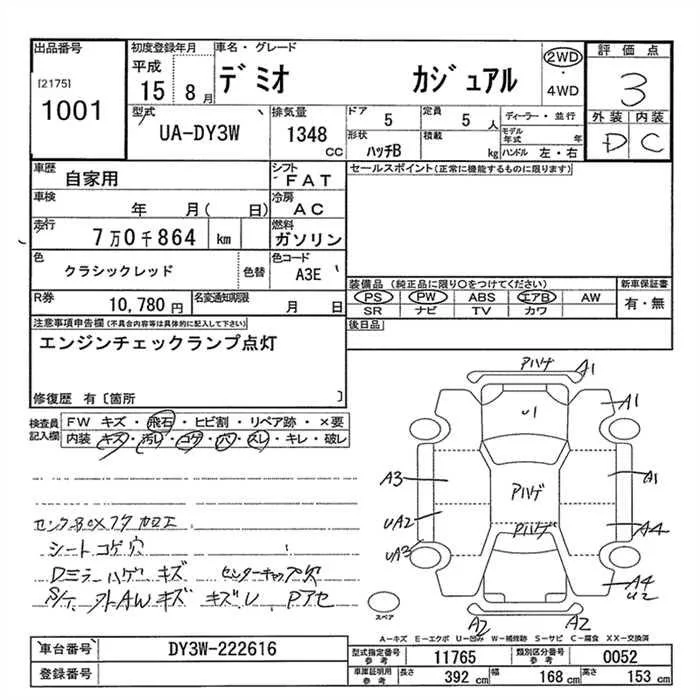 出品番号
[2175]
1001
初度登録年月
平成
15 8月
車名・グレード
デミオ カジュアル
2WD
・
4WD
評価点
3
外装 内装
D C
型式
UA-DY3W
排気量
1348
CC
ドア
5
定員
5 人
形状
ハッチB
積載
kg
ディーラー・並行
モデル年式 年
ハンドル 左・右
車歴
自家用
シフト
FAT
セールスポイント(正常に機能するものに限ります)
車検
年 月( 日)
冷房
AC
走行
7万0千864 km
燃料
ガソリン
色
クラシックレッド
色替
色コード
A3E
装備品 (純正品に限り○をつけてください)
PS PW ABS エアB AW
SR ナビ TV カワ
新車保証書
有・無
R券
10,780円
名変通知期限
月 日
後日品
注意事項申告欄(不具合内容等は具体的に記入して下さい)
エンジンチェックランプ点灯
修復歴 有〔箇所 〕
検査員記入欄
FW キズ・飛石・ヒビ割・リペア跡・×要
内装・キズ・汚レ・コゲ・穴・スレ・キレ・破レ
センターBOXフタ加工
シートコゲ穴
Dミラーハゲ、キズ センターキャップ欠
S/T. 外AWキズ キズU Pアセ
Aハゲ A1
A1
U1
A3
Aハゲ
A1
UA2
Aハゲ
A4
UA3
A4
U2
A2 A2
スペア
A-キズ E-エクボ U-凹み W-補修跡 S-サビ C-腐食 XX-交換済
車台番号
DY3W-222616
登録番号
型式指定番号
参考
11765
類別区分番号
参考
0052
車庫証明用
参考
長さ
392 cm
幅
168 cm
高さ
153 cm